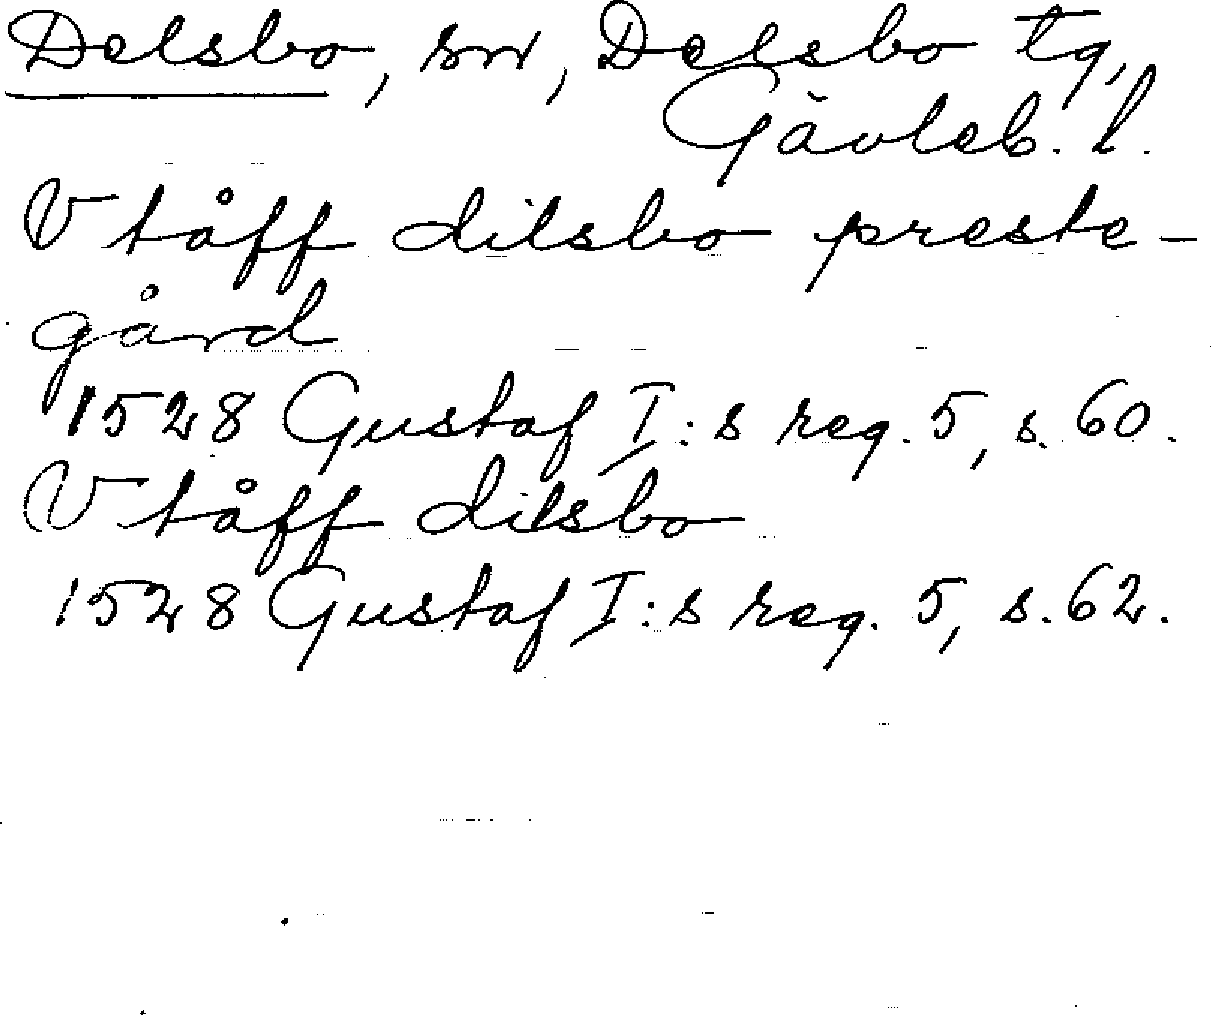 Delsbo, sn, Delsbo tg,
Gävleb. l.
V tåff dilsbo preste-
gård
1528 Gustaf I:s reg. 5, s. 60.
V tåff dilsbo
1528 Gustaf I:s reg. 5, s. 62.